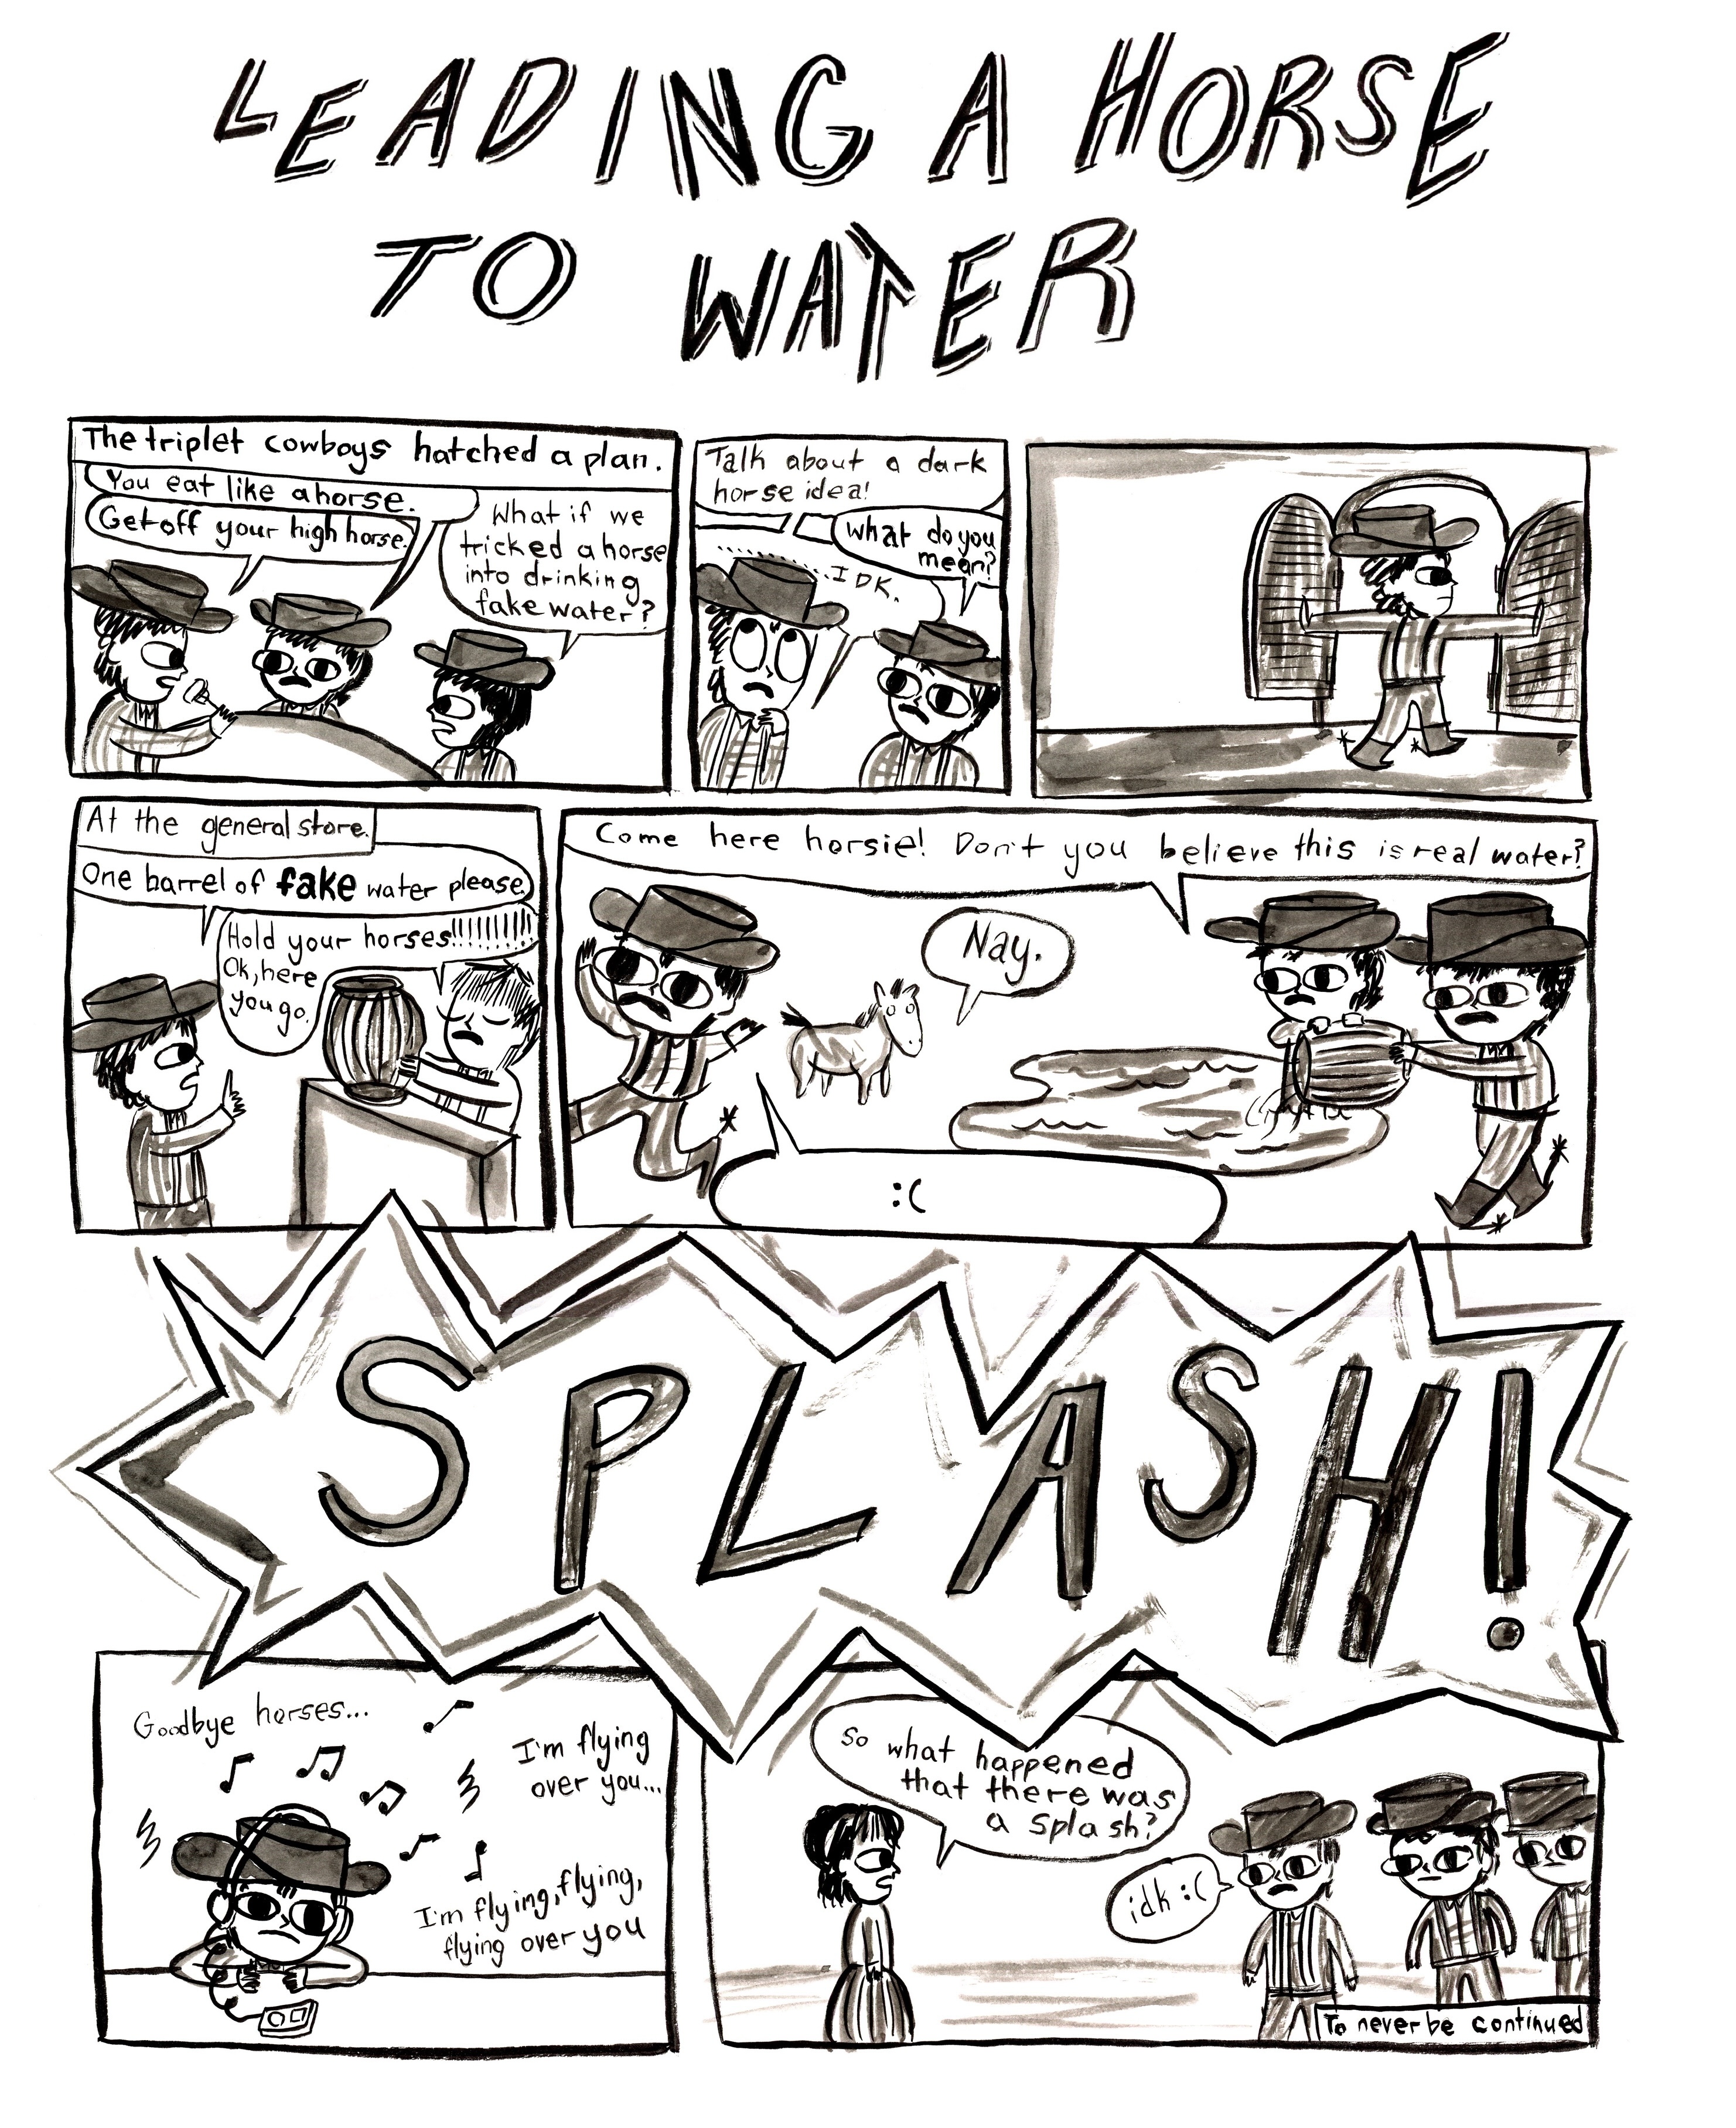 LEADING A HORSE
TO WATER
The triplet cowboys hatched a plan.
You eat like a horse.
Get off your high horse.
What if we
tricked a horse
into drinking
fake water?
Talk about a dark
horse idea!
What do you
mean?
...IDK.
At the general store.
One barrel of fake water please.
Hold your horses!!!!!!!!!!
Ok, here
you go.
Come here horsie! Don't you believe this is real water?
Nay.
:(
SPLASH!
Goodbye horses...
I'm flying
over you...
I'm flying, flying,
flying over you
So what happened
that there was
a splash?
idk :(
To never be continued